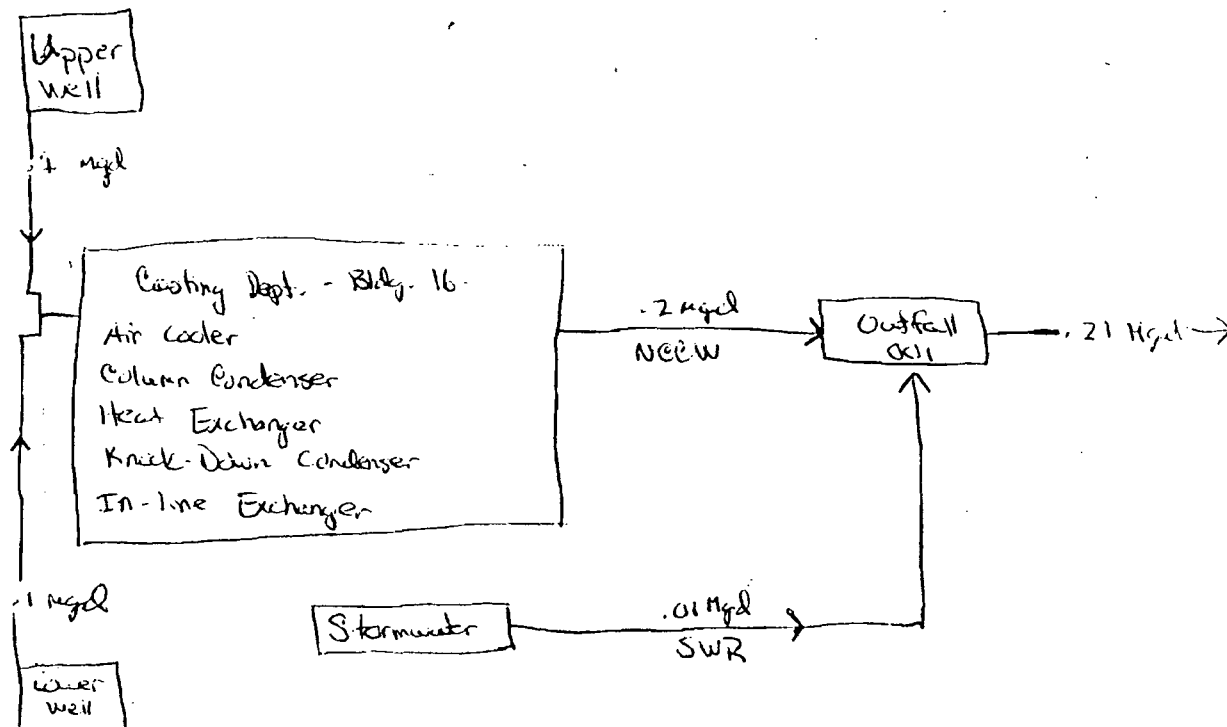 Upper
Well
.1 mgd
Casting Dept. - Bldg. 16.
Air Cooler
Column Condenser
Heat Exchanger
Knock-Down Condenser
In-line Exchanger
.2 Mgd
NCCW
Outfall
001
.21 Mgd
.1 mgd
Stormwater
.01 Mgd
SWR
Lower
Well